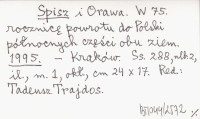 Spisz i Orawa. W 75.
rocznicę powrotu do Polski
północnych części obu ziem.
1995. – Kraków. Ss. 288, nlb 2,
il., m. 1, okł., cm 24 x 17. Red:
Tadeusz Trajdos.